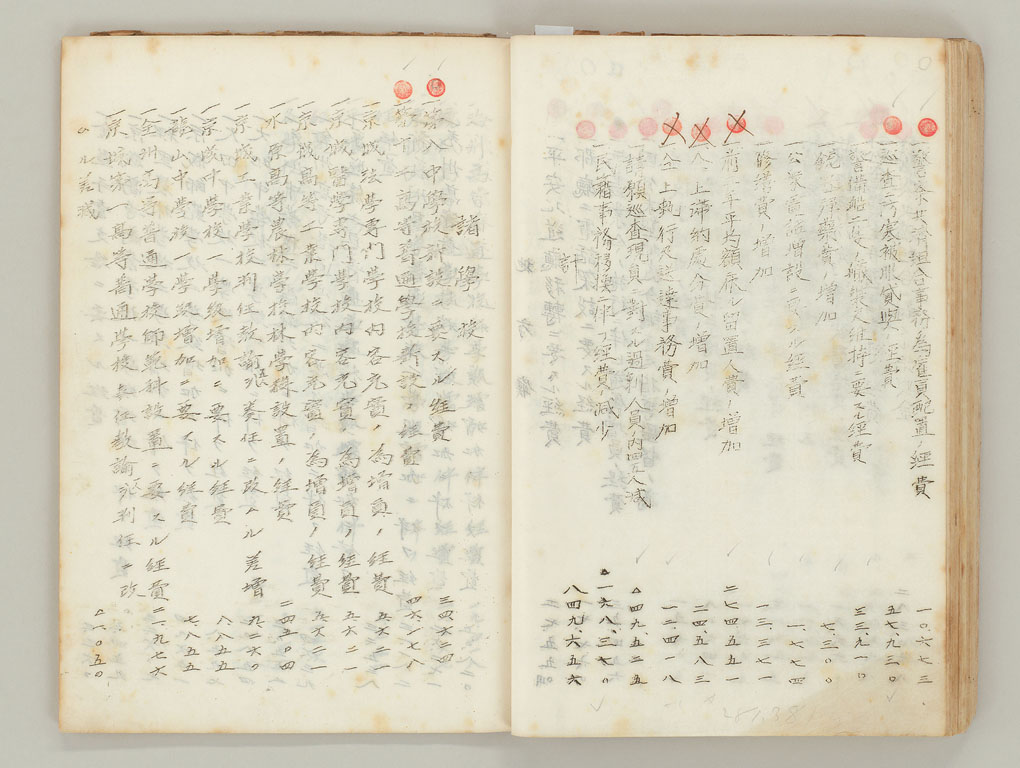 一警察共済組合事務ノ為雇員配置ノ経費 一〇、六七三
一巡査ノ汚損被服ノ貸与ノ経費 五七、九三〇
一警備船二隻ノ艤装及維持ニ要スル経費 三三、九一〇
一銃器弾薬費ノ増加 七、三〇〇
一公衆電話増設ニ要スル経費 一、七七四
一修繕費ノ増加 一三、三七一
一前三年平均額ニ依ル留置人費ノ増加 二七四五五一
一仝上滞納処分費ノ増加 二四、五八三
一仝上執行及証違事務費ノ増加 一二、四一八
一請願巡査現員ニ対スル過剰人員ノ内四五人減 △四九、五二五
一民籍事務移換ニ伴フ経費ノ減少 △一六八、三七〇
計 八四九、六五六
諸学校
一 中学校新設ニ要スル経費 三四六二四
一 高等普通学校新設ノ経費 四六、一七八
一京城法学専門学校内容充実ノ為増員ノ経費 五、六二一
一京城医学専門学校内容充実ノ為増員ノ経費 五、六二一
一京城高等工業学校内容充実ノ為増員ノ経費 五、六二一
一水原高等農林学校林学科設置ノ経費 二四五〇四
一京城工業学校判任教諭ヲ奏任ニ改ムル差増 九、二六〇
一京城中学校一学級増加ニ要スル経費 八、八五五
一龍山中学校一学級増加ニ要スル経費 七、八五五
一全州高等普通学校師範科設置ニ要スル経費 二一、九七六
一京城第一高等普通学校奏任教諭ヲ判任ニ改
ムル差減 △一、〇五〇